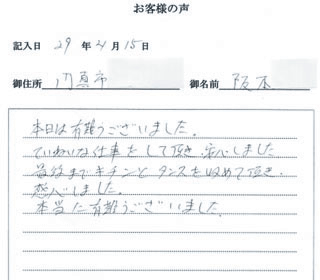 お客様の声
記入日 29年4月15日
御住所 門真市 御名前 阪本
本日は有難うございました。
ていねいな仕事をして頂き、安心しました
最後までキチンとタンスを収めて頂き、
感心しました。
本当に有難うございました。